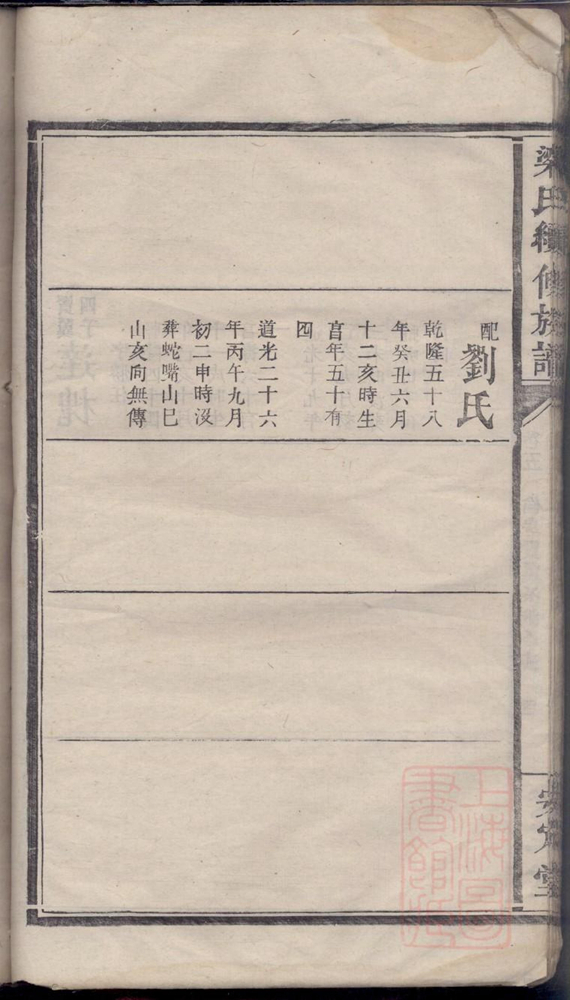 梁氏續修族譜
安定堂
配劉氏
乾隆五十八
年癸丑六月
十二亥時生
亯年五十有
四
道光二十六
年丙午九月
初二申時沒
葬蛇嘴山巳
山亥向無傳
上海圖
書館藏